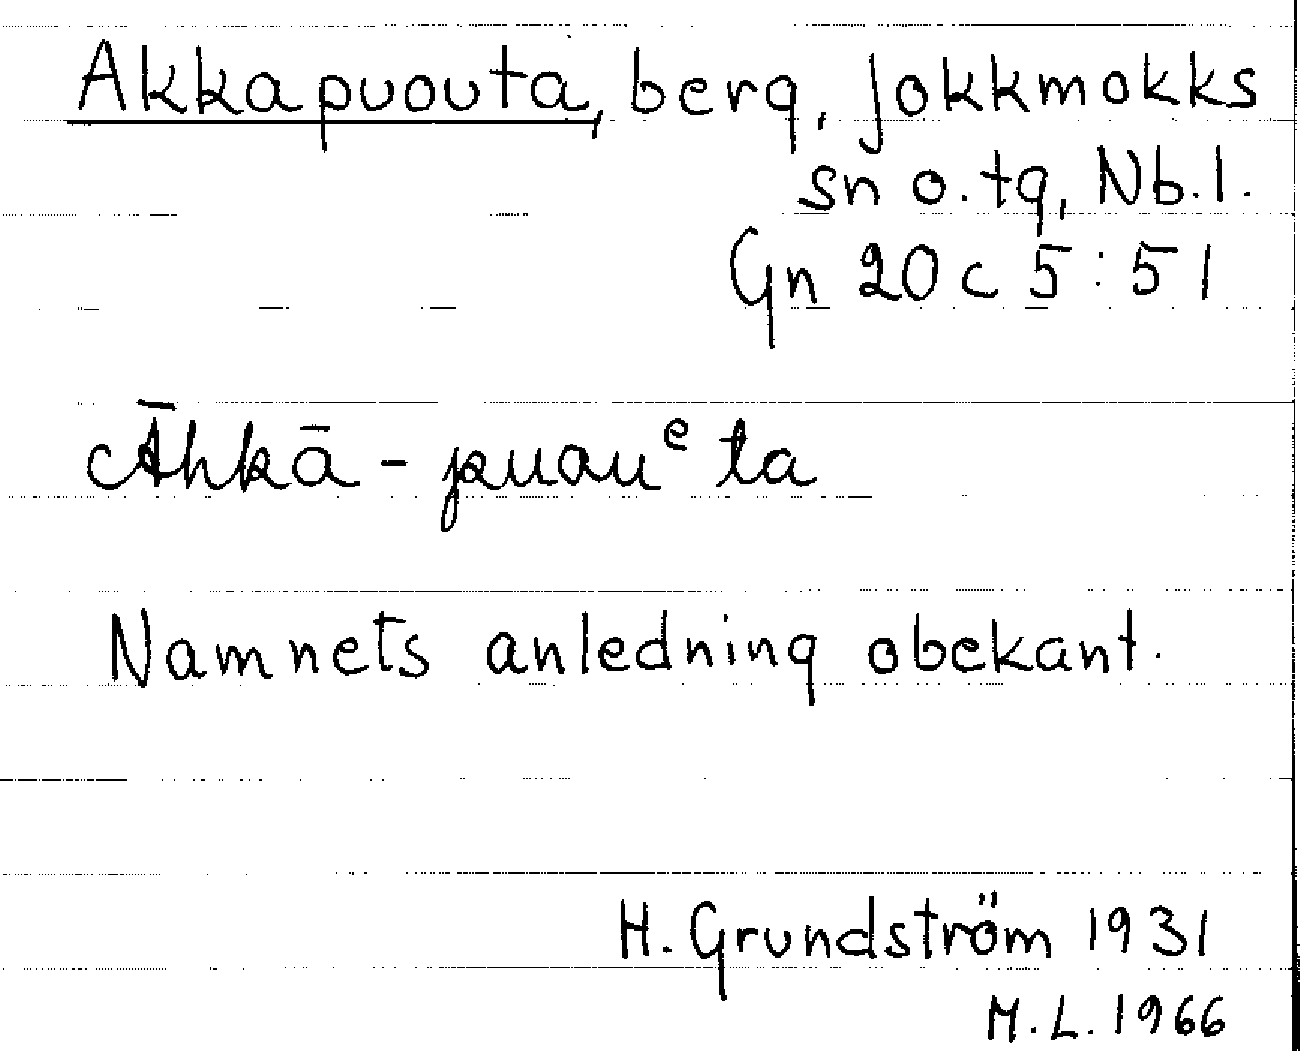 Akkapuouta, berg, Jokkmokks
sn o. tg, Nb. l.
Gn 20 c 5:51
Āhkā-puauᵉta
Namnets anledning obekant.
H. Grundström 1931
M.L. 1966